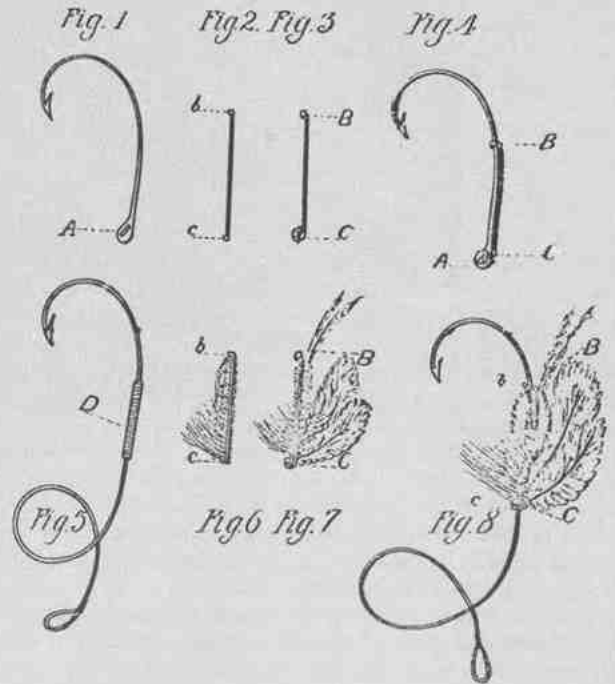 Fig. 1 Fig 2. Fig. 3 Fig. 4
b B
B
A c C
A c
b B
B
D b
c C
c C
Fig. 5 Fig. 6 Fig. 7 Fig. 8